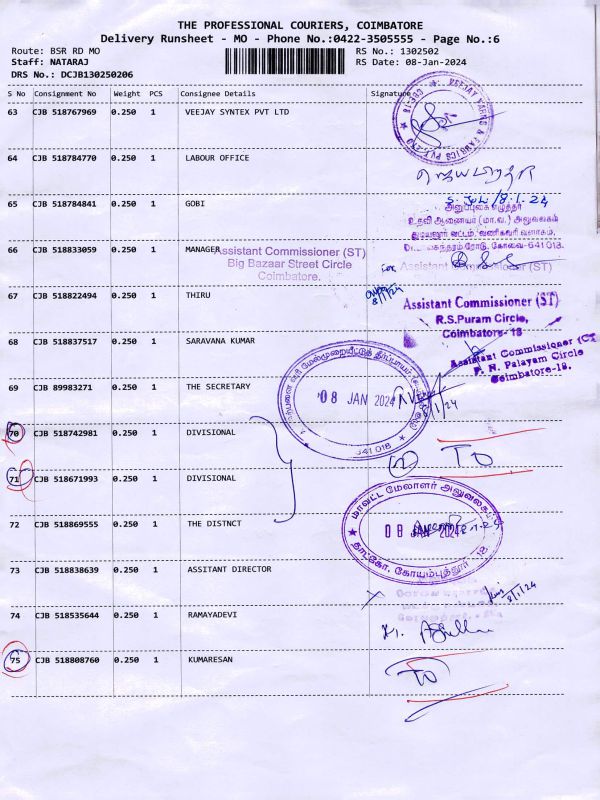 THE PROFESSIONAL COURIERS, COIMBATORE
Delivery Runsheet - MO - Phone No.:0422-3505555 - Page No.:6
Route: BSR RD MO RS No.: 1302502
Staff: NATARAJ RS Date: 08-Jan-2024
DRS No.: DCJB130250206
S No Consignment No Weight PCS Consignee Details Signature
63 CJB 518767969 0.250 1 VEEJAY SYNTEX PVT LTD
64 CJB 518784770 0.250 1 LABOUR OFFICE
65 CJB 518784841 0.250 1 GOBI
66 CJB 518833059 0.250 1 MANAGER
Assistant Commissioner (ST)
Big Bazaar Street Circle
Coimbatore.
Assistant Commissioner (ST)
67 CJB 518822494 0.250 1 THIRU
Assistant Commissioner (ST)
R.S.Puram Circle,
Coimbatore- 18
68 CJB 518837517 0.250 1 SARAVANA KUMAR
Assistant Commissioner
P. N. Palayam Circle
Coimbatore-18.
69 CJB 89983271 0.250 1 THE SECRETARY
08 JAN 2024
641 018
70 CJB 518742981 0.250 1 DIVISIONAL
TO
71 CJB 518671993 0.250 1 DIVISIONAL
72 CJB 518869555 0.250 1 THE DISTNCT
மாவட்ட மேலாளர் அலுவலகம்
08 JAN 2024
தாட்கோ. கோயம்புத்தூர் - 18
73 CJB 518838639 0.250 1 ASSITANT DIRECTOR
8/1/24
74 CJB 518535644 0.250 1 RAMAYADEVI
75 CJB 518808760 0.250 1 KUMARESAN
TO